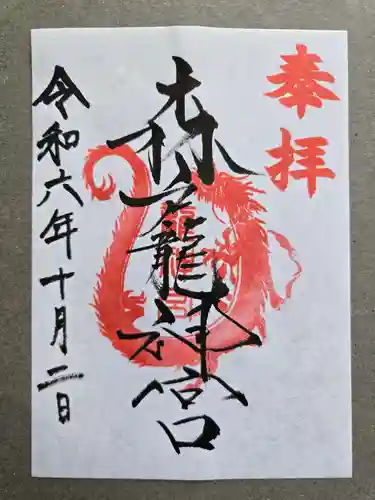 奉拝
森龗神宮
令和六年十月二日